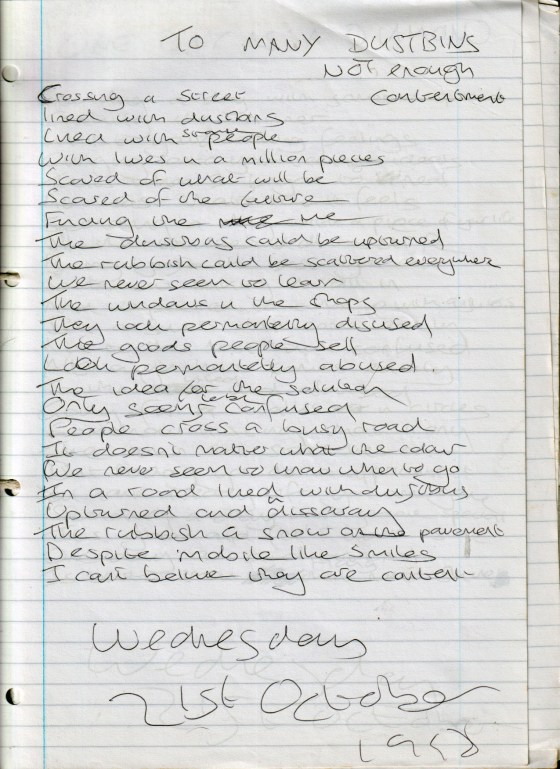 TO MANY DUSTBINS
Not enough
Contentment
Crossing a street
lined with dustbins
Lined with strange people
With lives in a million pieces
Scared of what will be
Scared of the future
Facing the me
The dustbins could be upturned
The rubbish could be scattered everywhere
We never seem to learn
The windows in the shops
They look permantly disused
The goods people sell
Look permantly abused.
The idea for the solution
Only seems confused
People cross a busy road
It doesn't matter what the colour
We never seem to know when to go
In a road lined with dustbins
Upturned and in dissaray
The rubbish a snow on the pavement
Despite mobile like smiles
I can't belive they are content
Wednesday
21st October